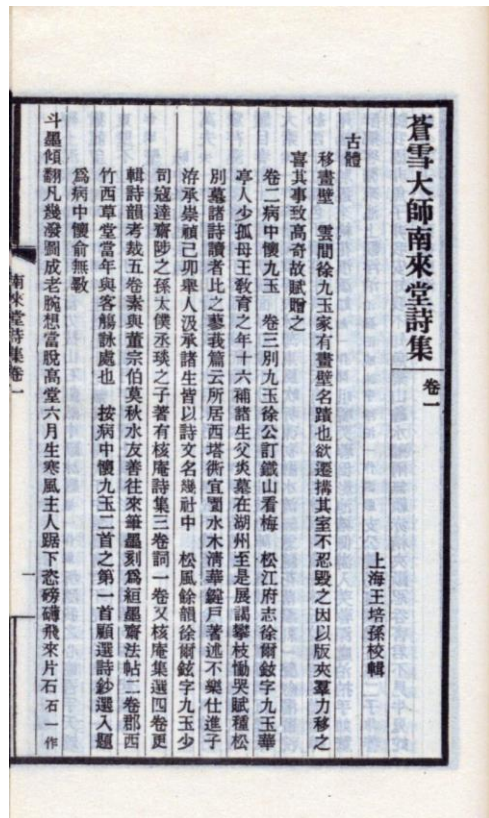 蒼雪大師南來堂詩集 卷一
上海王培孫校輯
古體
移畫壁 雲間徐九玉家有畫壁名蹟也欲遷搆其室不忍毀之因以版夾羣力移之
喜其事致高奇故賦贈之
卷二病中懷九玉 卷三別九玉徐公訂鐵山看梅 松江府志徐爾鉉字九玉華
亭人少孤母王敎育之年十六補諸生父炎墓在湖州至是展謁攀枝慟哭賦種松
別墓諸詩讀者比之蓼莪篇云所居西塔衖宜園水木清華鍵戶著述不樂仕進子
洊承崇禎己卯舉人汲承諸生皆以詩文名幾社中 松風餘韻徐爾鉉字九玉少
司寇達齋陟之孫太僕丞琰之子著有核庵詩集三卷詞一卷又核庵集選四卷更
輯詩韻考裁五卷素與董宗伯莫秋水友善往來筆墨刻爲絙墨齋法帖二卷郡西
竹西草堂當年與客觴詠處也 按病中懷九玉二首之第一首顧選詩鈔選入題
爲病中懷俞無斁
斗墨傾翻凡幾潑圖成老腕想當脫高堂六月生寒風主人踞下恣磅礴飛來片石 石一作
南來堂詩集卷一
一